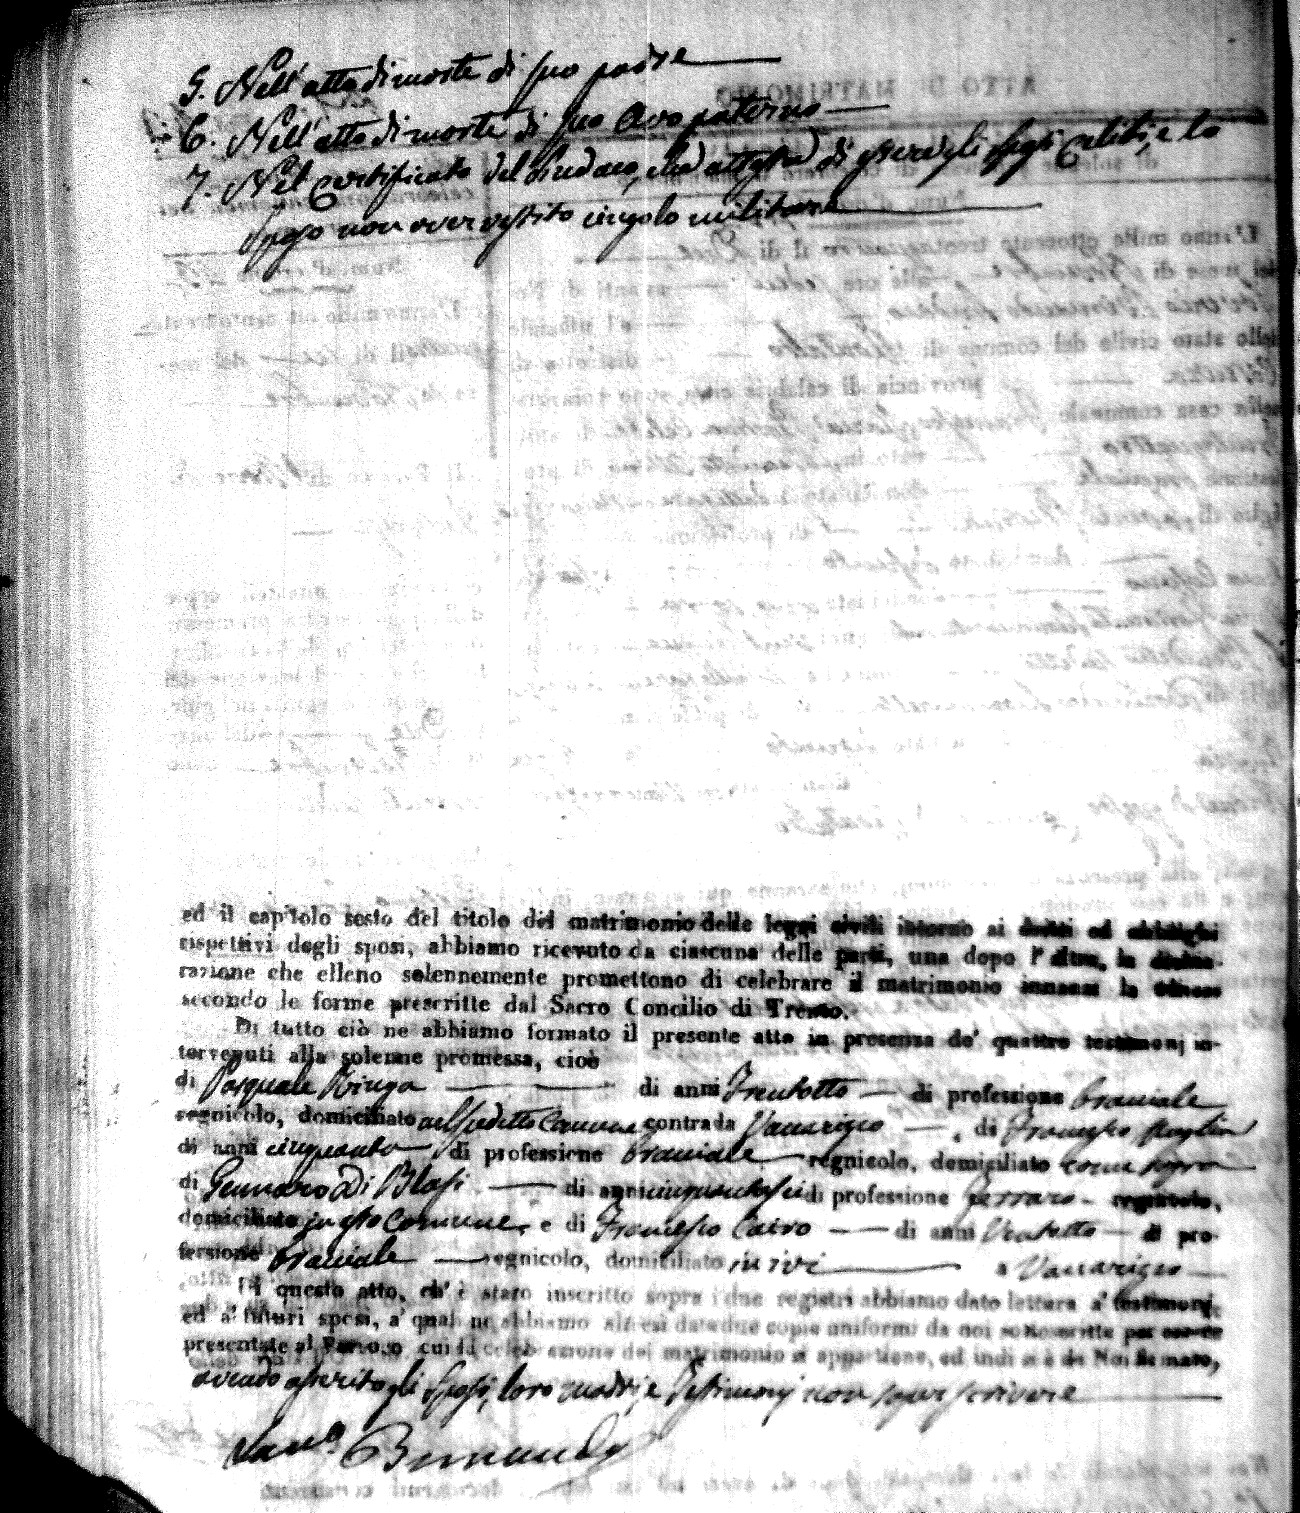 5. Nell'atto di morte di suo padre
6. Nell'atto di morte di suo Avo paterno
7. Nel certificato del Sindaco, che attesta di esser gli sposi celibi, e lo
sposo non aver vestito cingolo militare
ed il capitolo sesto del titolo del matrimonio delle leggi civili intorno ai dritti ed obblighi
rispettivi degli sposi, abbiamo ricevuto da ciascuna delle parti, una dopo l'altra, la dichia-
razione che elleno solennemente promettono di celebrare il matrimonio innanzi la Chiesa
secondo le forme prescritte dal Sacro Concilio di Trento.
Di tutto ciò ne abbiamo formato il presente atto in presenza de' quattro testimonj in-
tervenuti alla solenne promessa, cioè
di Pasquale di anni Trentotto di professione bracciale
regnicolo, domiciliato nel sudetto Comune contrada di Francesco
di anni cinquanta di professione bracciale regnicolo, domiciliato come sopra
di Gennaro Di Blasi di anni di professione ferraro regnicolo,
domiciliato in esto Comune, e di Francesco Cairo di anni Ventotto di pro-
fessione bracciale regnicolo, domiciliato in ivi a
Di questo atto, ch'è stato inscritto sopra i due registri abbiamo dato lettura a' testimonj,
ed a' futuri sposi, a' quali ne abbiamo altresì date due copie uniformi da noi sottoscritte per essere
presentate al Parroco cui la celebrazione del matrimonio si appartiene, ed indi si è da Noi firmato,
avendo asserito gli sposi, loro madri, e Testimonj non saper scrivere